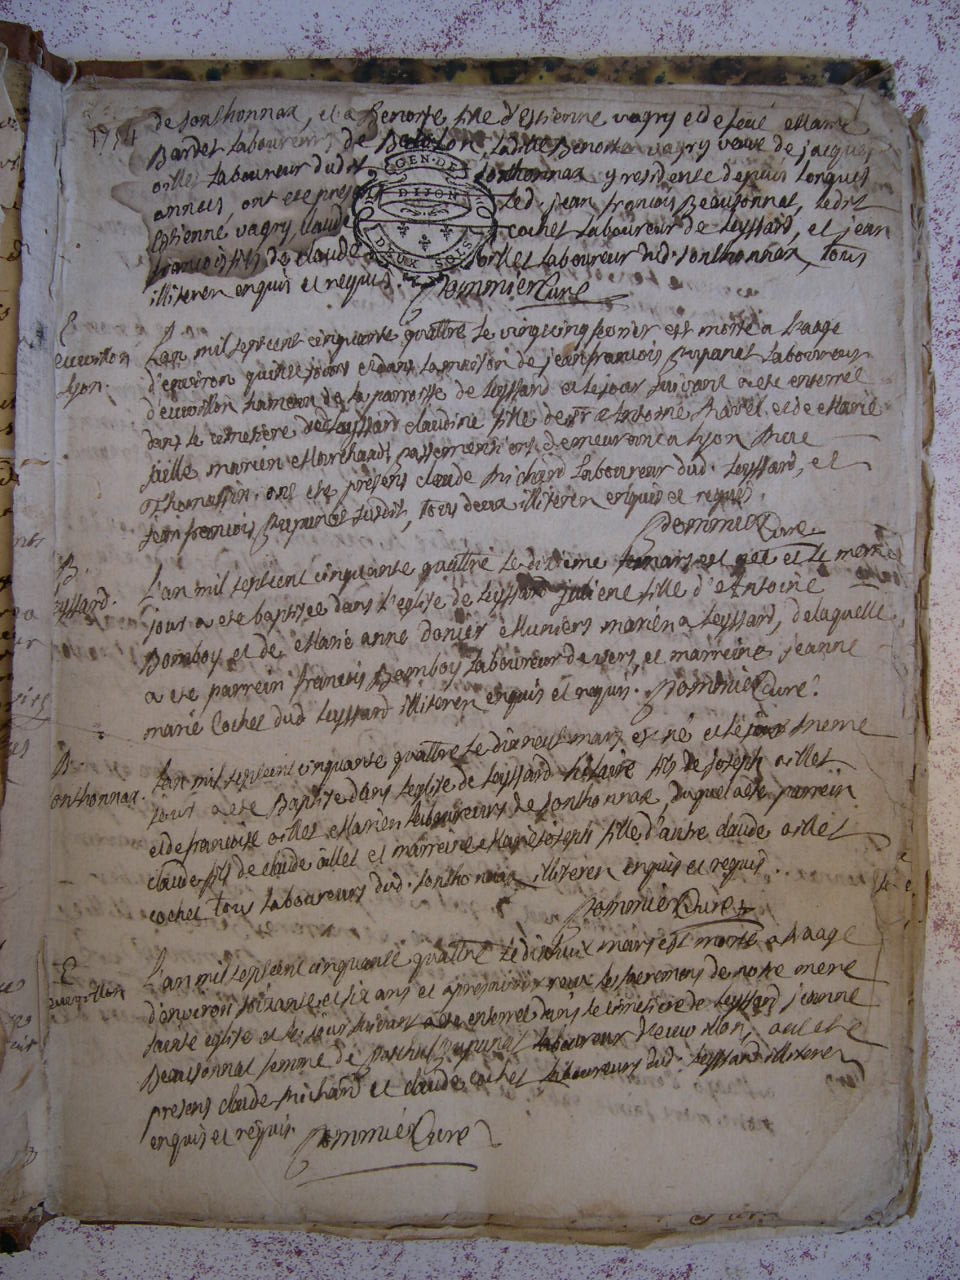 1754
de sonthonnax, et a Benoite fille d'Estienne vagry et de feue Marie
Bardet Laboureurs de Bolozon, ladite Benoite vagry veuve de jacques
oillet Laboureur dudit sonthonnax y residente depuis Longues
années, ont eté presens led. jean francois Beausonnet, ledit
Estienne vagry, claude cochet Laboureur de Leyssard, et jean
francois fils de claude oillet Laboureur dud. sonthonnax, tous
illiteréz enquis et requis. Pommier Curé
GEN. DE DIJON
DEUX SOLS
E
Lyon.
L'an mil sept cent cinquante quattre Le vingt cinq fevrier est morte a L'aage
d'environ quinze jours et dans La maison de jean francois Pupunat Laboureur
d'euvoillon hameau de La parroisse de Leyssard et Le jour suivant a eté enterrée
dans le cimetiere de Leyssard claudine fille de Sr Antoine et de Marie
mariéz Marchands passementiers demeurant a Lyon Rue
Thomassin. ont eté présens claude Michard Laboureur dud. Leyssard, et
jean francois Pupunat susdit, tous deux illiteréz enquis et requis.
Pommier Curé
B.
Leyssard.
L'an mil sept cent cinquante quattre le dixième mars est née et Le meme
jour a eté baptisée dans L'eglise de Leyssard juliene fille d'Antoine
Bomboy et de Marie anne donier Muniers mariéz a Leyssard, de laquelle
a eté parrein francois Bomboy Laboureur de vers, et marreine jeanne
marie Cochet dud Leyssard illiteréz enquis et requis. Pommier Curé.
B.
sonthonnax.
L'an mil sept cent cinquante quattre Le dix neuf mars est né et Le jour meme
jour a eté Baptisé dans L'eglise de Leyssard hilaire fils de joseph oillet
et de francoise oillet Mariéz Laboureurs de sonthonnax, duquel a eté parrein
claude fils de claude oillet et marreine Marie joseph fille d'autre claude oillet
cochet tous Laboureurs dud. sonthonnax illiteréz enquis et requis.
Pommier Curé
E
euvoillon
L'an mil sept cent cinquante quattre Le dix huit mars est morte a L'aage
d'environ soixante et six ans et apres avoir receu les sacremens de notre mere
sainte eglise et Le jour suivant a eté enterrée dans le cimetiere de Leyssard jeanne
Beausonnat femme de Pupunat Laboureur d'euvoillon, ont eté
presens claude Michard et claude cochet Laboureurs dud. Leyssard illiteréz
enquis et requis. Pommier Curé